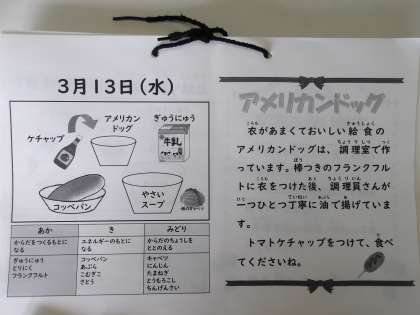 3月13日(水)
アメリカン
ドッグ
ぎゅうにゅう
ケチャップ
牛乳
コッペパン
やさい
スープ
あか
き
みどり
からだをつくるもとに
なる
エネルギーのもとに
なる
からだのちょうしを
ととのえる
ぎゅうにゅう
とりにく
フランクフルト
コッペパン
あぶら
こむぎこ
さとう
キャベツ
にんじん
たまねぎ
とうもろこし
ちんげんさい
アメリカンドッグ
衣があまくておいしい給食の
アメリカンドッグは、調理室で作
っています。棒つきのフランクフル
トに衣をつけた後、調理員さんが
一つひとつ丁寧に油で揚げていま
す。
トマトケチャップをつけて、食べ
てくださいね。